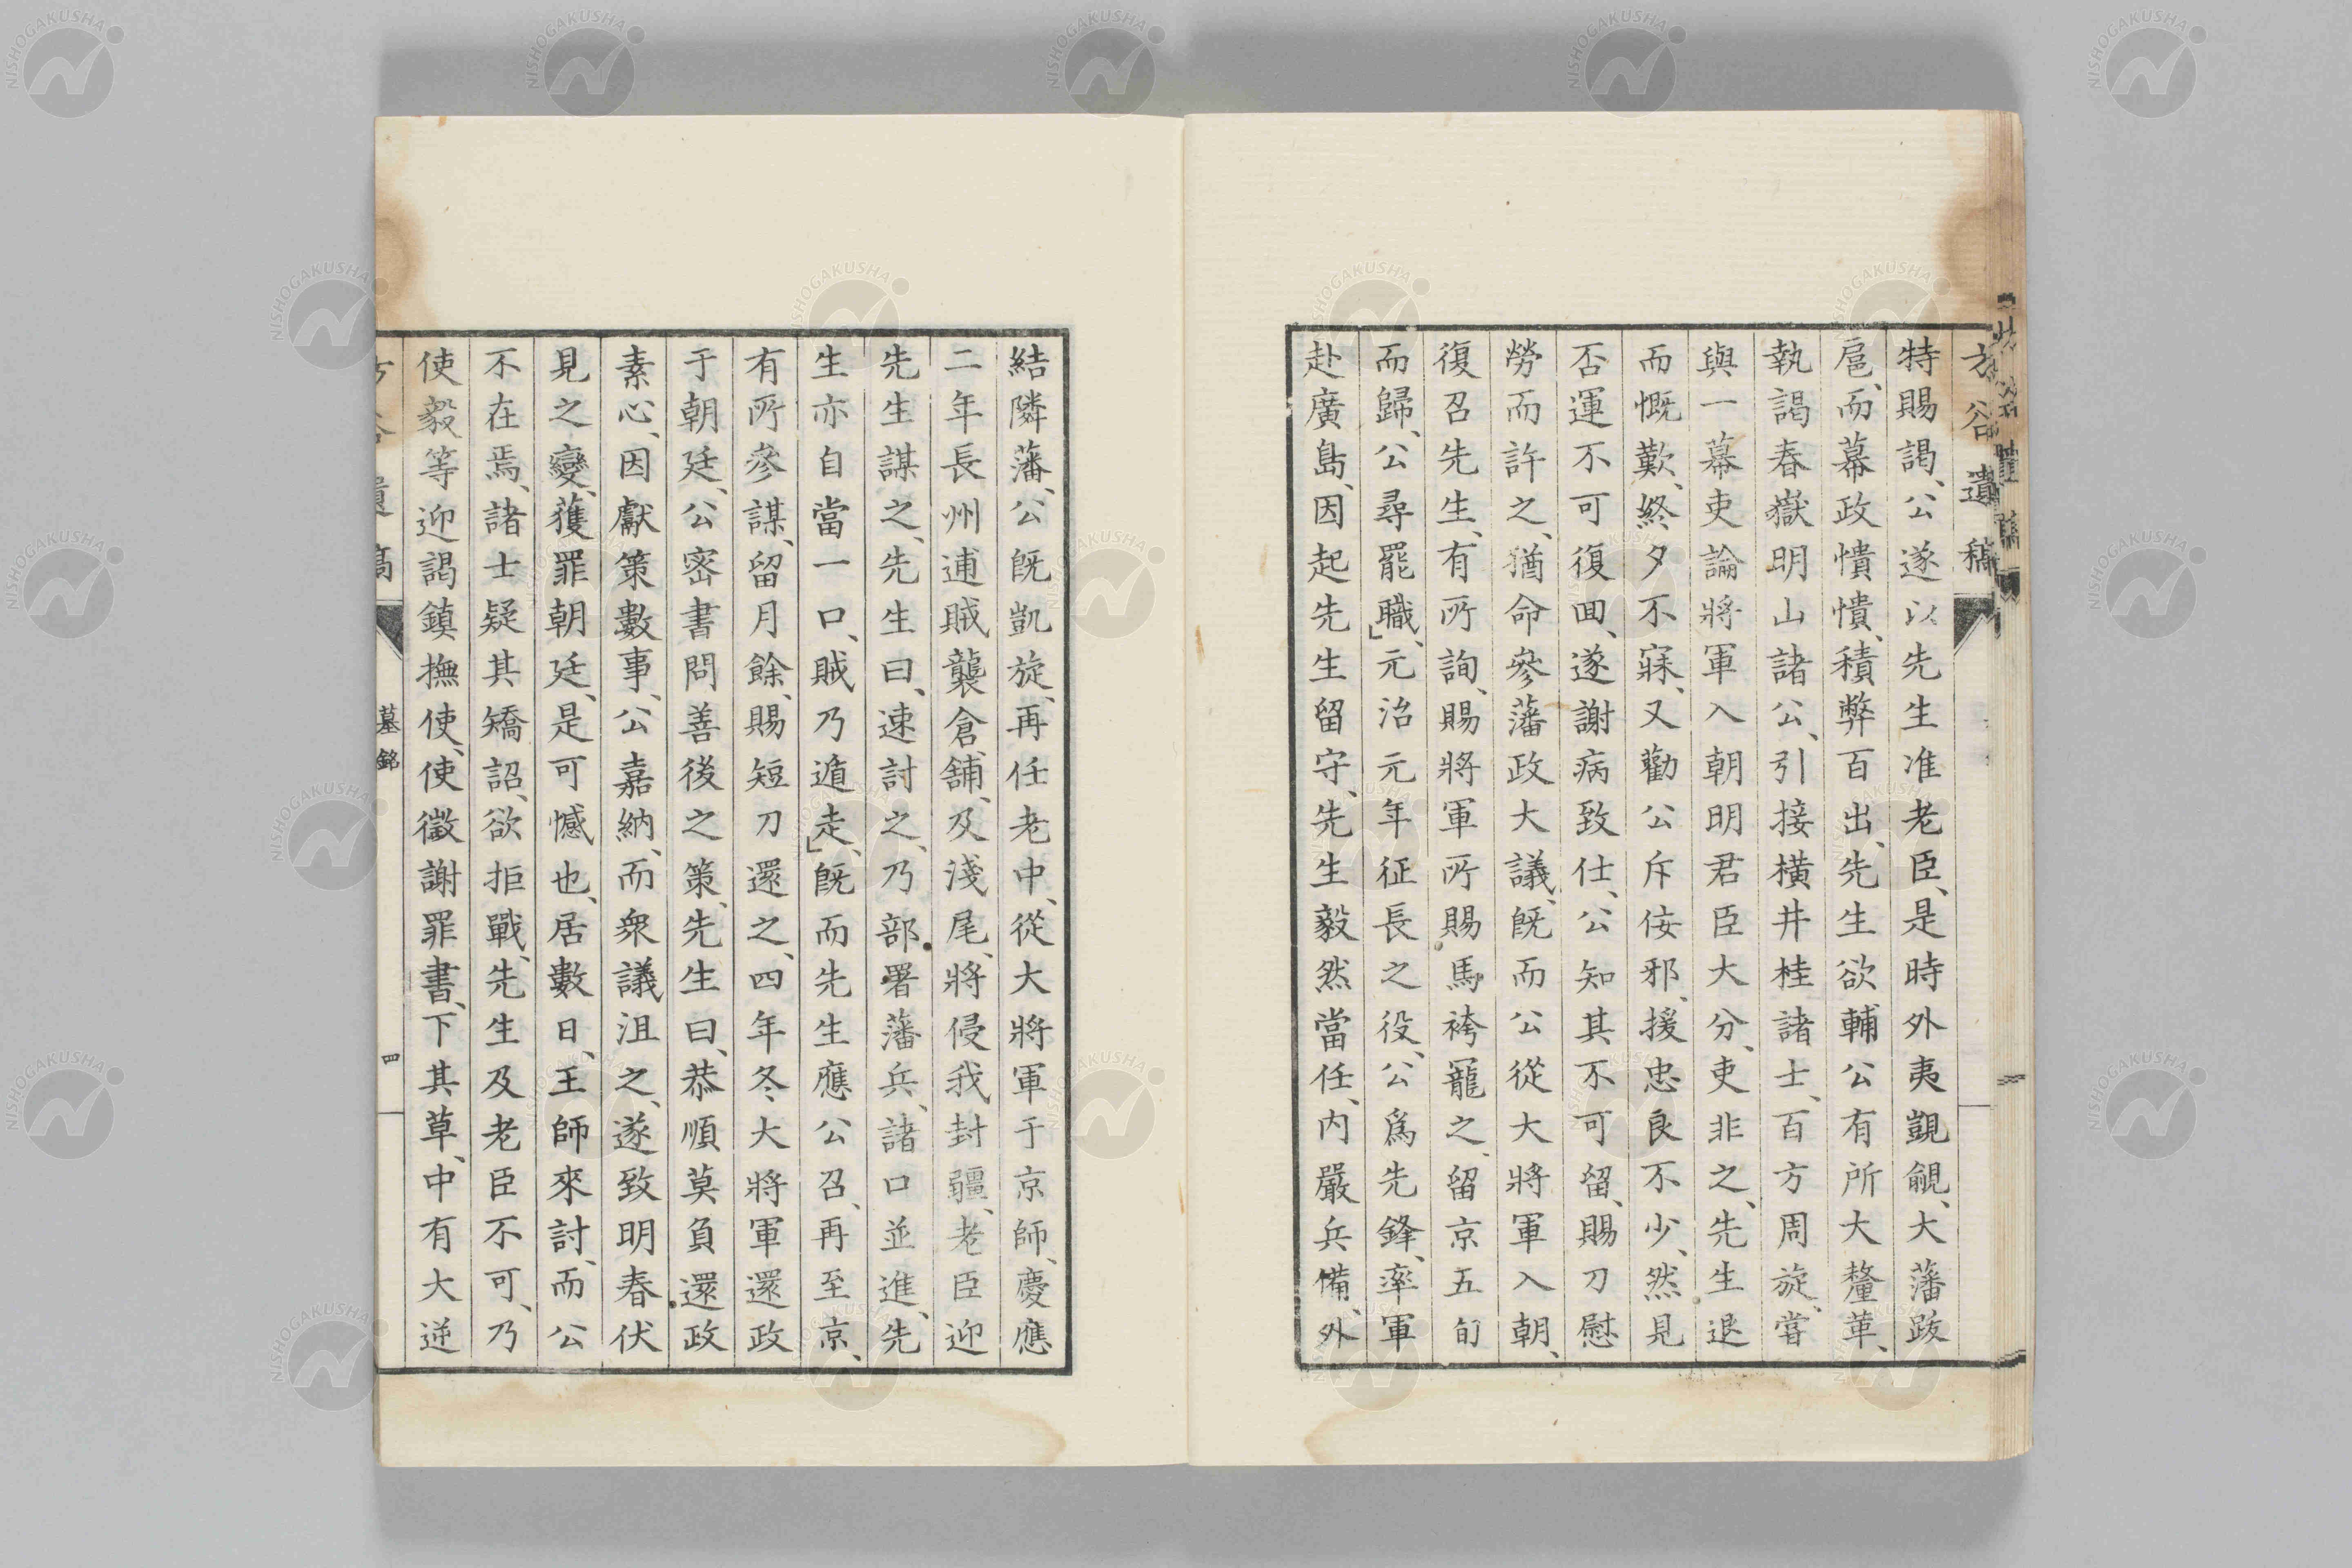 方谷遺稿
特賜謁、公遂以先生准老臣、是時外夷覬覦、大藩跋
扈、而幕政憒憒、積弊百出、先生欲輔公有所大釐革、
執謁春嶽明山諸公、引接橫井桂諸士、百方周旋、嘗
與一幕吏論將軍入朝明君臣大分、吏非之、先生退
而慨歎、終夕不寐、又勸公斥佞邪、援忠良不少、然見
否運不可復回、遂謝病致仕、公知其不可留、賜刀慰
勞而許之、猶命參藩政大議、既而公從大將軍入朝、
復召先生、有所詢、賜將軍所賜馬袴寵之、留京五旬
而歸、公尋罷職、」元治元年征長之役、公爲先鋒、率軍
赴廣島、因起先生留守、先生毅然當任、内嚴兵備、外
結隣藩、公既凱旋、再任老中、從大將軍于京師、慶應
二年長州逋賊襲倉舖、及淺尾、將侵我封疆、老臣迎
先生謀之、先生曰、速討之、乃部署藩兵、諸口並進、先
生亦自當一口、賊乃遁走、」既而先生應公召、再至京、
有所參謀、留月餘、賜短刀還之、四年冬大將軍還政
于朝廷、公密書問善後之策、先生曰、恭順莫負還政
素心、因獻策數事、公嘉納、而衆議沮之、遂致明春伏
見之變、獲罪朝廷、是可憾也、居數日、王師來討、而公
不在焉、諸士疑其矯詔、欲拒戰、先生及老臣不可、乃
使毅等迎謁鎮撫使、使徵謝罪書、下其草、中有大逆
墓銘
四
NISHOGAKUSHA